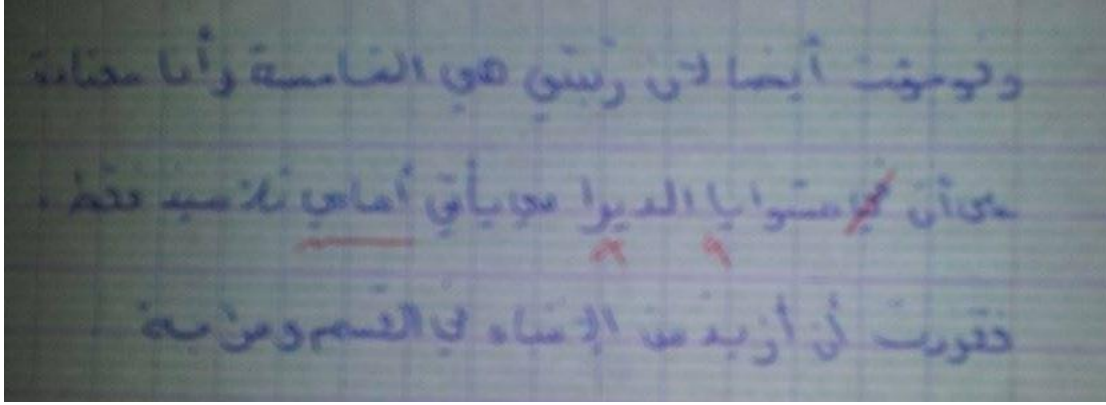 وفوجئت أيضا لان رتبتي هي الخامسة وأنا معتادة
على أن مستوايا الديرا أمامي تلاميذ فقط .
فقررت أن أزيد من الإنتباه في القسم ومراجعة